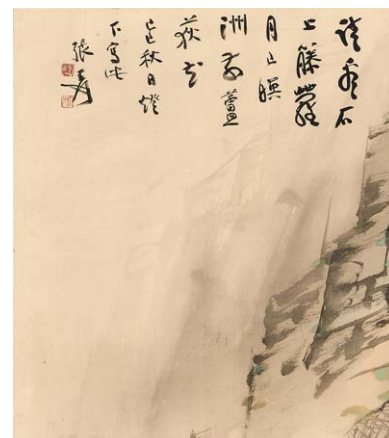 請看石
上藤蘿
月已暎
洲前蘆
荻花
己巳秋日燈
下寫此
張爰